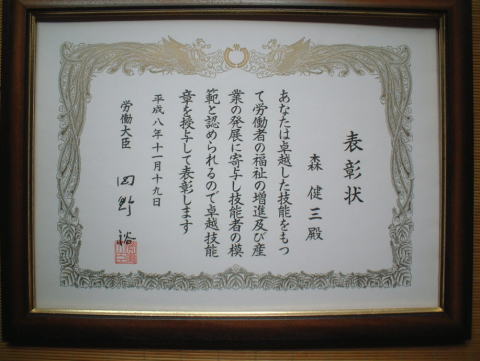 表彰状
森健三殿
あなたは卓越した技能をもつ
て労働者の福祉の増進及び産
業の発展に寄与し技能者の模
範と認められるので卓越技能
章を授与して表彰します
平成八年十一月十九日
労働大臣 岡野裕